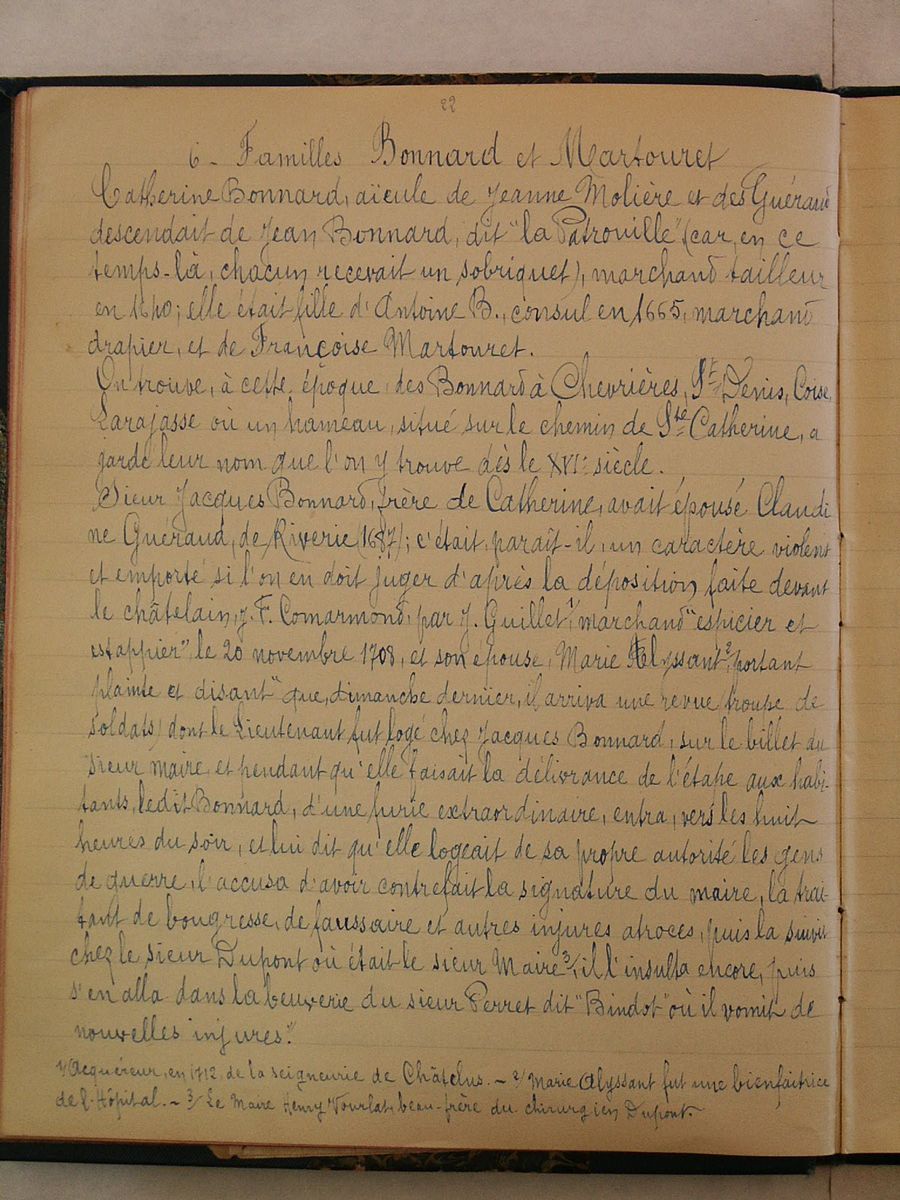 22
6 - Familles Bonnard et Martouret
Catherine Bonnard, aïeule de Jeanne Molière et des Guéraud
descendait de Jean Bonnard, dit "la Patrouille" (car, en ce
temps-là, chacun recevait un sobriquet), marchand tailleur
en 1640; elle était fille d'Antoine B., consul en 1665, marchand
drapier, et de Françoise Martouret.
On trouve, à cette époque, des Bonnard à Chevrières, St Denis, Coise,
Larajasse où un hameau, situé sur le chemin de Ste Catherine, a
gardé leur nom que l'on y trouve dès le XVIe siècle.
Sieur Jacques Bonnard, frère de Catherine, avait épousé Claudi
ne Guéraud, de Riverie (1687); c'était, paraît-il, un caractère violent
et emporté si l'on en doit juger d'après la déposition faite devant
le châtelain, J. F. Comarmond, par J. Guillet 1/, marchand "espicier et
estappier", le 20 novembre 1708, et son épouse, Marie Alyssant 2/, portant
plainte et disant "que, dimanche dernier, il arriva une revue (troupe de
soldats) dont le Lieutenant fut logé chez Jacques Bonnard, sur le billet du
sieur maire, et pendant qu'elle faisait la délivrance de l'étape aux habi-
tants, ledit Bonnard, d'une furie extraordinaire, entra, vers les huit
heures du soir, et lui dit qu'elle logeait de sa propre autorité les gens
de guerre, l'accusa d'avoir contrefait la signature du maire, la trai-
tant de bougresse, de faussaire et autres injures atroces, puis la suivit
chez le sieur Dupont où était le sieur Maire 3/, il l'insulta encore, puis
s'en alla dans la beuverie du sieur Perret dit "Bindot" où il vomit de
nouvelles injures."
1/ Acquéreur, en 1712, de la seigneurie de Châtelus. - 2/ Marie Alyssant fut une bienfaitrice
de l'Hôpital. - 3/ Le Maire Henry Vourlat, beau-frère du chirurgien Dupont.